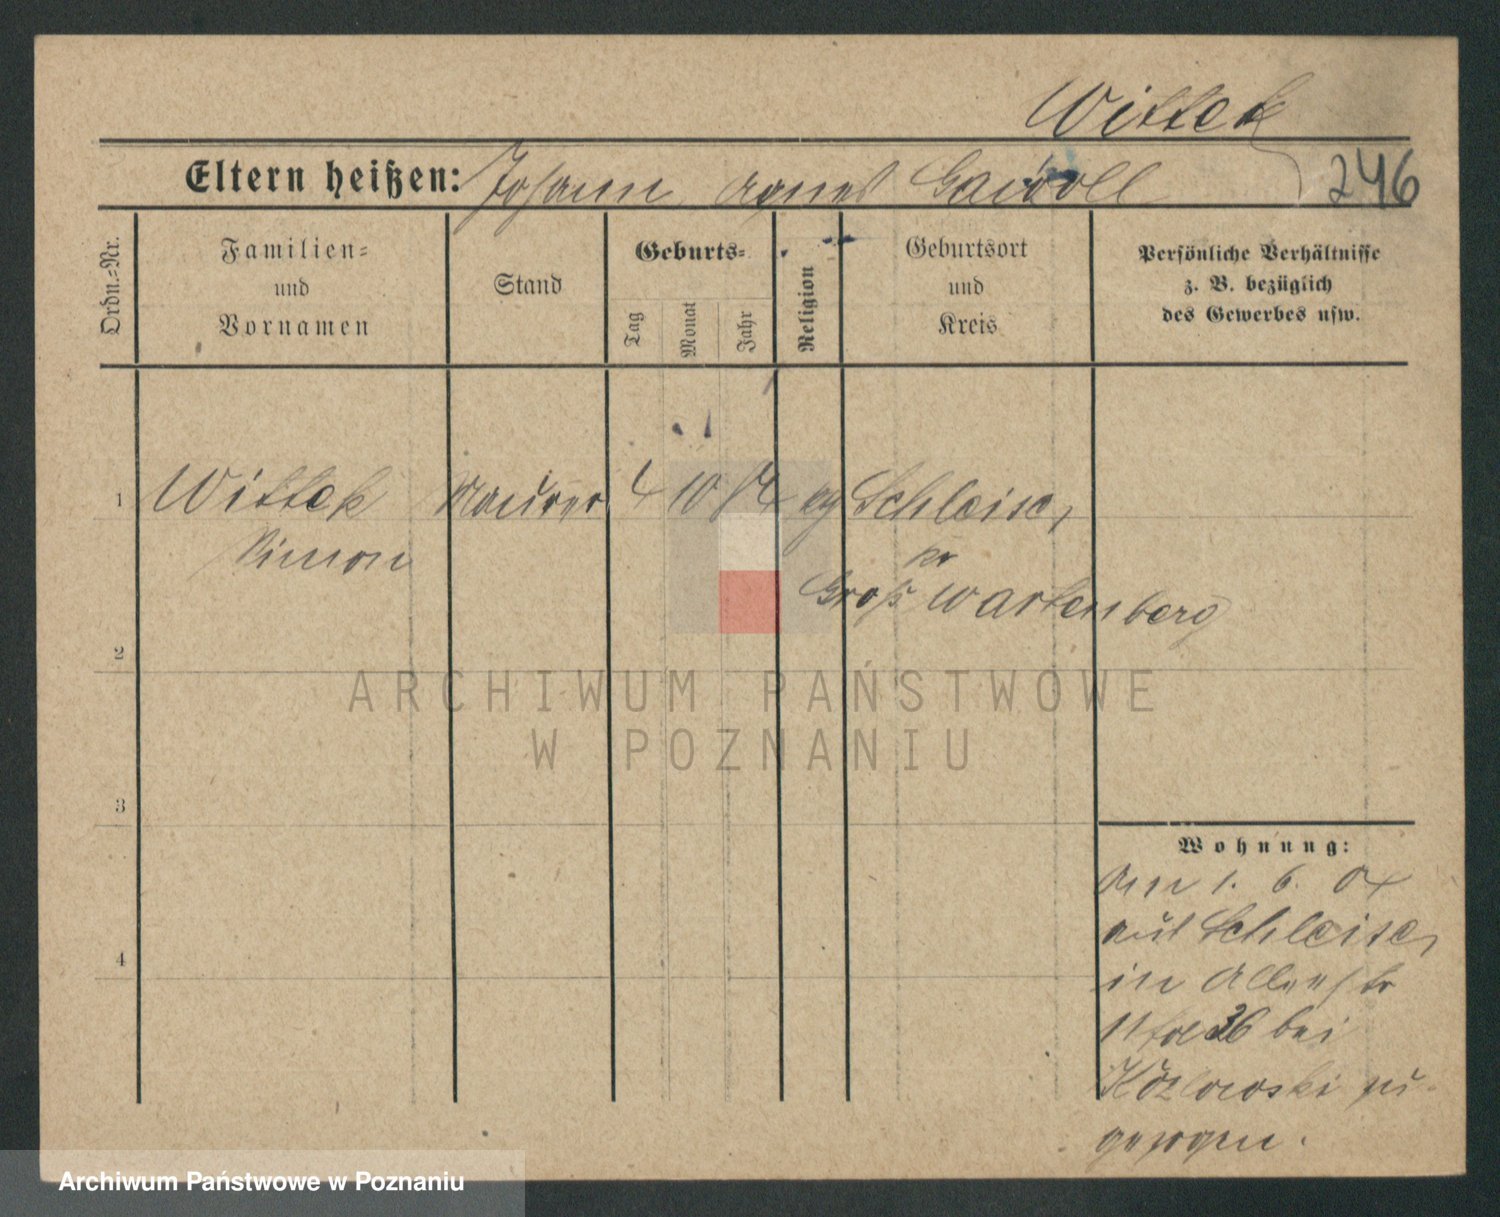 Wittek
Eltern heißen: Johann, Agnes 246
Ordn.=Nr.
Familien=
und
Vornamen
Stand
Geburts=
Tag
Monat
Jahr
Religion
Geburtsort
und
Kreis
Persönliche Verhältnisse
z. B. bezüglich
des Gewerbes usw.
1 Wittek Maurer 4 10 84 Schleise,
Simon
Kr
Groß Wartenberg
2
3
4
Wohnung:
Am 1. 6. 04
aus Schleise,
in
36 bei
Kozlowski zu
gezogen.
ARCHIWUM PAŃSTWOWE
W POZNANIU
Archiwum Państwowe w Poznaniu